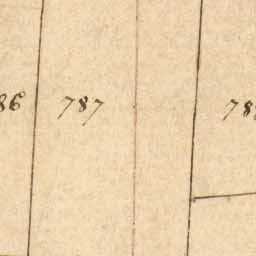 86 787 78